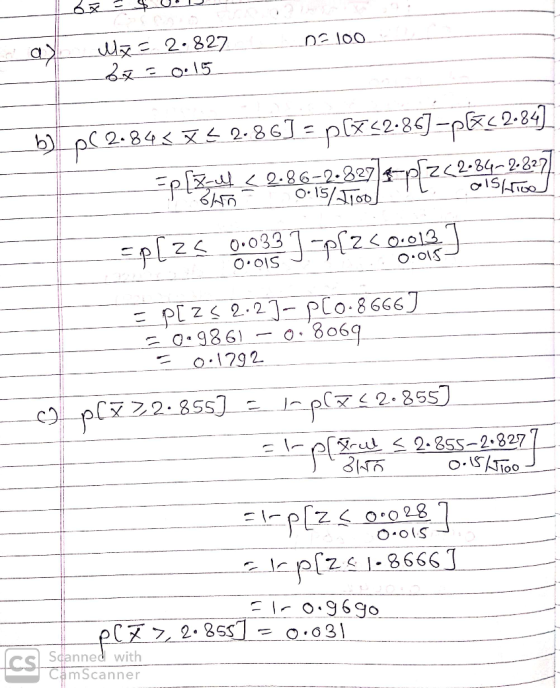 σx̄ = $ 0.15
a) μx̄ = 2.827 n = 100
σx̄ = 0.15
b) p[2.84 ≤ x̄ ≤ 2.86] = p[x̄ ≤ 2.86] - p[x̄ ≤ 2.84]
= p[x̄-μ/σ/√n ≤ 2.86-2.827/0.15/√100] - p[z < 2.84-2.827/0.15/√100]
= p[z ≤ 0.033/0.015] - p[z < 0.013/0.015]
= p[z ≤ 2.2] - p[0.8666]
= 0.9861 - 0.8069
= 0.1792
c) p[x̄ ≥ 2.855] = 1-p[x̄ ≤ 2.855]
= 1-p[x̄-μ/σ/√n ≤ 2.855-2.827/0.15/√100]
= 1-p[z ≤ 0.028/0.015]
= 1-p[z ≤ 1.8666]
= 1-0.9690
p[x̄ ≥ 2.855] = 0.031
CS Scanned with
CamScanner